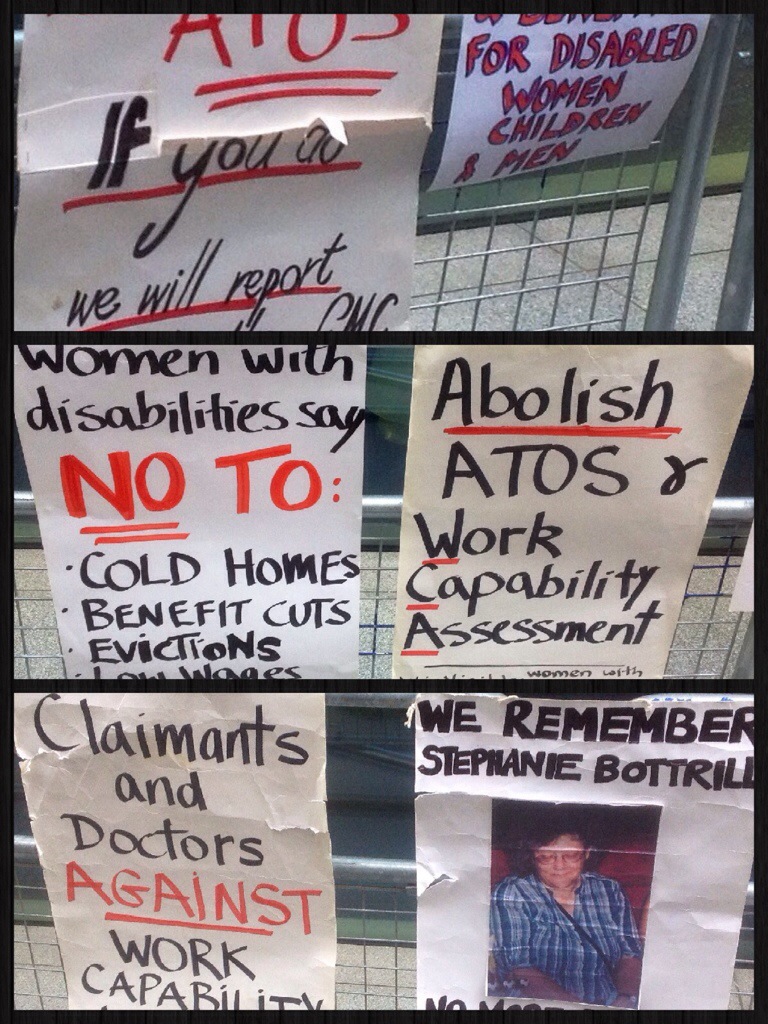 ATOS
If you do
we will report
GMC
FOR DISABLED
WOMEN
CHILDREN
& MEN
Women with
disabilities say
NO TO:
· COLD HOMES
· BENEFIT CUTS
· EVICTIONS
· Low Wages
Abolish
ATOS &
Work
Capability
Assessment
women with
Claimants
and
Doctors
AGAINST
WORK
CAPABILITY
WE REMEMBER
STEPHANIE BOTTRILL
NO MORE